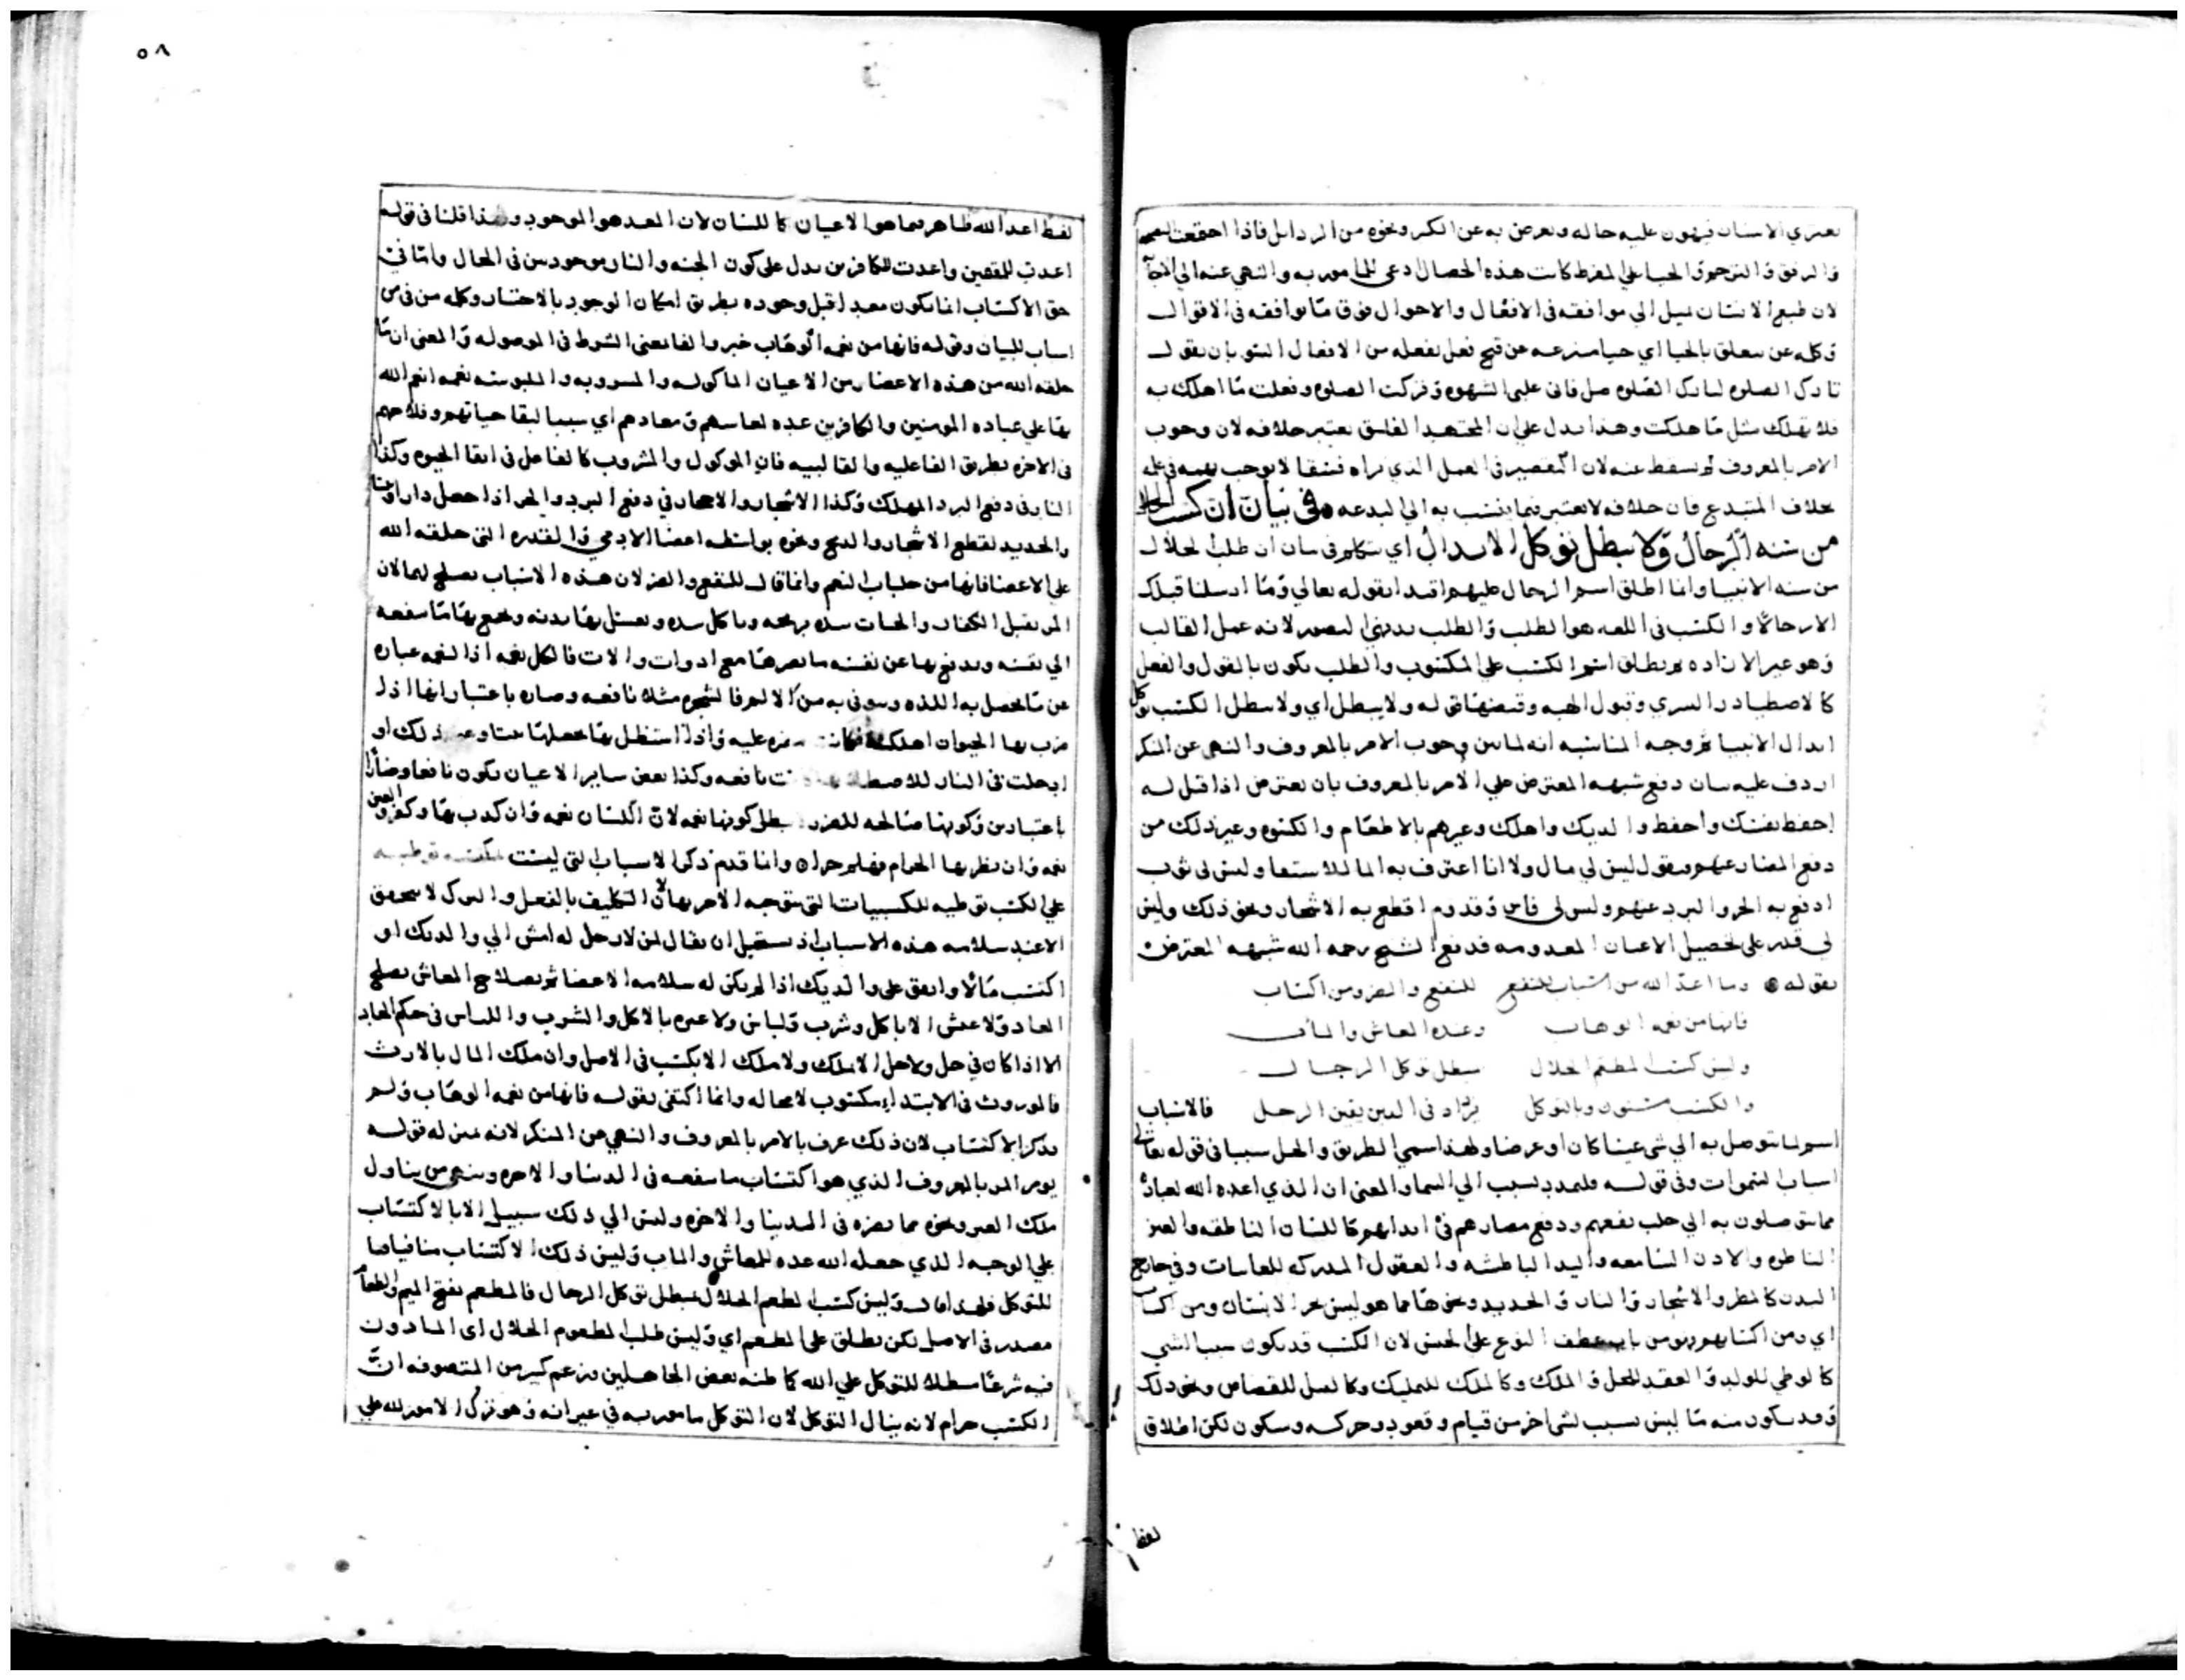 يعتري الانسان فيهون عليه حاله ويعرض به عن الكبر ونحوه من الرذايل فاذا اجتمعت
والرفق والترحم والحيا علي المفرط كانت هذه الخصال ادعي للمامور به والنهي عنه الي
لان طبع الانسان يميل الي موافقه في الافعال والاحوال فوق ما يوافقه في الاقوال
وكلمه عن يتعلق بالحيا اي حيا منزعه عن قبح فعل يفعله من الافعال السو بان يقول
تارك الصلوه لتارك الصلوه صل فاني غلبني الشهوه وتركت الصلوه وفعلت ما اهلك به
فلا تهلك مثل ما هلكت وهذا يدل علي ان المجتهد الفاسق يعتبر خلافه لان وجوب
الامر بالمعروف لم يسقط عنه لان التقصير في العمل الذي يراه فسقا لا يوجب
بخلاف المبتدع فان خلافه لا يعتبر فيما ينسب به الي البدعه في بيان ان كسب الحلال
من سنه الرجال ولا يبطل توكل الابدال اي يتكلم في بيان ان طلب الحلال
من سنه الانبيا وانما اطلق اسم الرجال عليهم اقتدا بقوله تعالي وما ارسلنا قبلك
الا رجالا والكسب في اللغه هو الطلب والطلب بديهي التصور لانه عمل القالب
وهو غير الاراده ثم يطلق اسم الكسب علي المكسوب والطلب يكون بالقول والفعل
كالاصطياد والتسري وقبول الهبه وقبضها قوله ولا يبطل اي ولا يبطل الكسب توكل
ابدال الانبيا ثم وجه المناسبه انه لما بين وجوب الامر بالمعروف والنهي عن المنكر
اردف عليه بيان دفع شبهه المعترض علي الامر بالمعروف بان يعترض اذا قيل له
احفظ نفسك واحفظ والديك واهلك وغيرهم بالاطعام والكسوه وغير ذلك من
دفع المضار عنهم ويقول ليس لي مال ولا انا اعترف به المال للاستعا وليس لي ثوب
ادفع به الحر والبرد عنهم وليس لي فاس وقدوم اقطع به الاشجار ونحو ذلك وليس
لي قدر علي تحصيل الاعيان المعدومه فدفع الشيخ رحمه الله شبهه المعترض
بقوله وما اعد الله من اسباب للنفع والضر ومن اكتساب
فانها من نعم الوهاب وعده المعاش والمآب
وليس كسب المطعم الحلال يبطل توكل الرجال
والكسب مسنون وبالتوكل يزاد في الدين يقين الرجل فالاسباب
اسم لما يتوصل به الي شي عينا كان او عرضا ولهذا سمي الطريق والحبل سببا في قوله تعالي
اسباب السموات وفي قوله فليمدد بسبب الي السما والمعني ان الذي اعده الله لعباده
مما يتوصلون به الي جلب نفعهم ودفع مضارهم في ابدانهم كاللسان الناطقه والعين
الناظره والاذن السامعه واليد الباطشه والعقول المدركه للغايبات وفي خارج
البدن كالمطر والاشجار والنار والحديد ونحوها مما هو ليس من الانسان ومن اكتساب
اي ومن اكتسابهم وهو من باب عطف النوع علي الجنس لان الكسب قد يكون سببا لشي
كالوطي للولد والعقد للحل والملك وكالملك للتمليك وكالقتل للقصاص ونحو ذلك
وقد يكون منه ما ليس بسبب لشي اخر من قيام وقعود وحركه وسكون لكن اطلاق
لفظ
٥٨
لفظ اعد الله ظاهر فيما هو الاعيان كاللسان لان المعد هو الموجود ولهذا قلنا في قوله
اعدت للمتقين واعدت للكافرين يدل علي كون الجنه والنار موجودين في الحال واما في
حق الاكتساب انما يكون معدا قبل وجوده بطريق امكان الوجود بالاختيار وكلمه من في من
اسباب للبيان وقوله فانها من نعم الوهاب خبر والفا بمعني الشرط في الموصوله والمعني ان ما
خلقه الله من هذه الاعضا من الاعيان الماكوله والمشروبه والملبوسه نعمه انعم الله
بها علي عباده المومنين والكافرين عده لمعاشهم ومعادهم اي سببا لبقا حياتهم وفلاحهم
في الاخره بطريق الفاعليه والقالبيه فان الموكول والمشروب كالفاعل في ابقا الحيوه وكذا
النار في دفع البرد المهلك وكذا الاشجار والاحجار في دفع البرد والحر اذا حصل دارا
والحديد لقطع الاشجار والذبح ونحوه بواسطه اعضا الادمي والقدره التي خلقه الله
علي الاعضا فانها من جلباب النعم وانما قال للنفع والضر لان هذه الاسباب تصلح لهما لان
المر يقتل الكفار والحيات بيده برمحه وياكل بيده ويغسل بها بدنه ويجمع بها ما ينفعه
الي نفسه ويدفع بها عن نفسه ما يضرها مع ادوات والات فالكل نعمه اذ النعمه عباره
عن ما يحصل به اللذه ويتوقي به من الالم فالشجره مثلا نافعه وضاره باعتبار انها اذا
ضرب بها الحيوان اهلك فكانت مضره عليه واذا استظل بها بجعلها بيتا وغير ذلك او
ادخلت في النار للاصطلا بها كانت نافعه وكذا بعض ساير الاعيان يكون نافعا وضارا
باعتبارين وكونها صالحه للضرر لا يبطل كونها نعمه لان اللسان نعمه وان كذب بها وكفر والعين
نعمه وان نظر بها الحرام فهلم جرا وانما قدم ذكر الاسباب التي ليست
علي الكسب توطيه للكسبيات التي يتوجه الامر بها لان التكليف بالفعل والترك لا يتحقق
الا عند سلامه هذه الاسباب اذ يستحيل ان يقال لمن لا رجل له امش الي والديك او
اكتسب مالا وانفق علي والديك اذا لم يكن له سلامه الاعضا ثم بصلاح المعاش يصلح
المعاد ولا عيش الا باكل وشرب ولباس ولا عبره بالاكل والشرب واللباس في حكم المعاد
الا اذا كان في حل ولا حل الا بملك ولا ملك الا بكسب في الاصل وان ملك المال بالارث
فالموروث في الابتدا مكسوب لا محاله وانما اكتفي بقوله فانها من نعم الوهاب ولم
يذكر الاكتساب لان ذلك عرف بالامر بالمعروف والنهي عن المنكر لانه بمنزله قوله
يومر المر بالمعروف الذي هو اكتساب ما ينفعه في الدنيا والاخره وينهي من يتناول
ملك الغير ونحوه مما يضره في الدنيا والاخره وليس الي ذلك سبيل الا بالاكتساب
علي الوجه الذي جعله الله عده للمعاش والمآب وليس ذلك الاكتساب منافيا
للتوكل فلهذا قال وليس كسب المطعم الحلال يبطل توكل الرجال فالمطعم بفتح الميم والطعام
مصدر في الاصل لكن يطلق علي المطعم اي وليس طلب المطعوم الحلال اي الماذون
فيه شرعا مبطلا للتوكل علي الله كما ظنه بعض الجاهلين وزعم كثير من المتصوفه ان
الكسب حرام لانه ينال التوكل لان التوكل مامور به في غير انه وهو ترك الامور لله علي